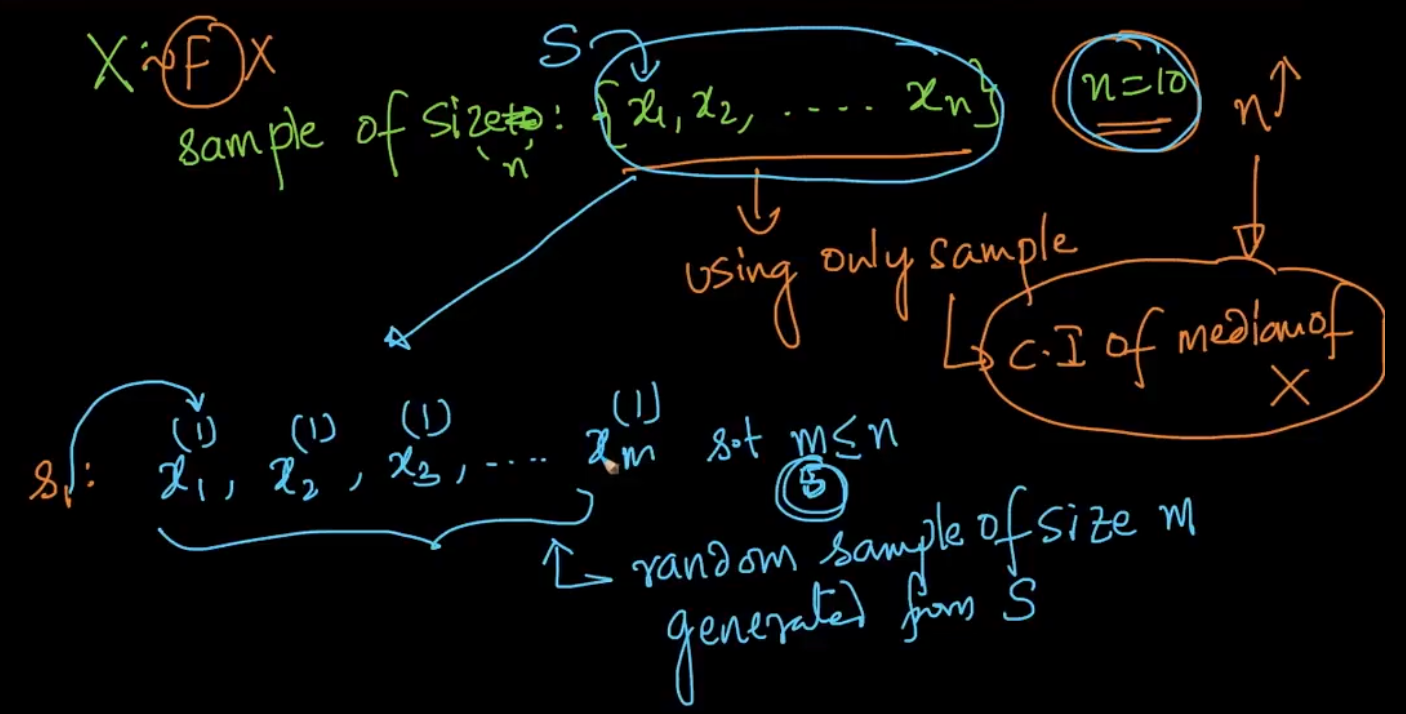 X ~ F X
S
sample of size n : {x₁, x₂, ..... xₙ}
n=10
n↑
using only sample
C.I of median of
X
s₁: x₁⁽¹⁾, x₂⁽¹⁾, x₃⁽¹⁾, .... xₘ⁽¹⁾ s.t m≤n
5
random sample of size m
generated from S